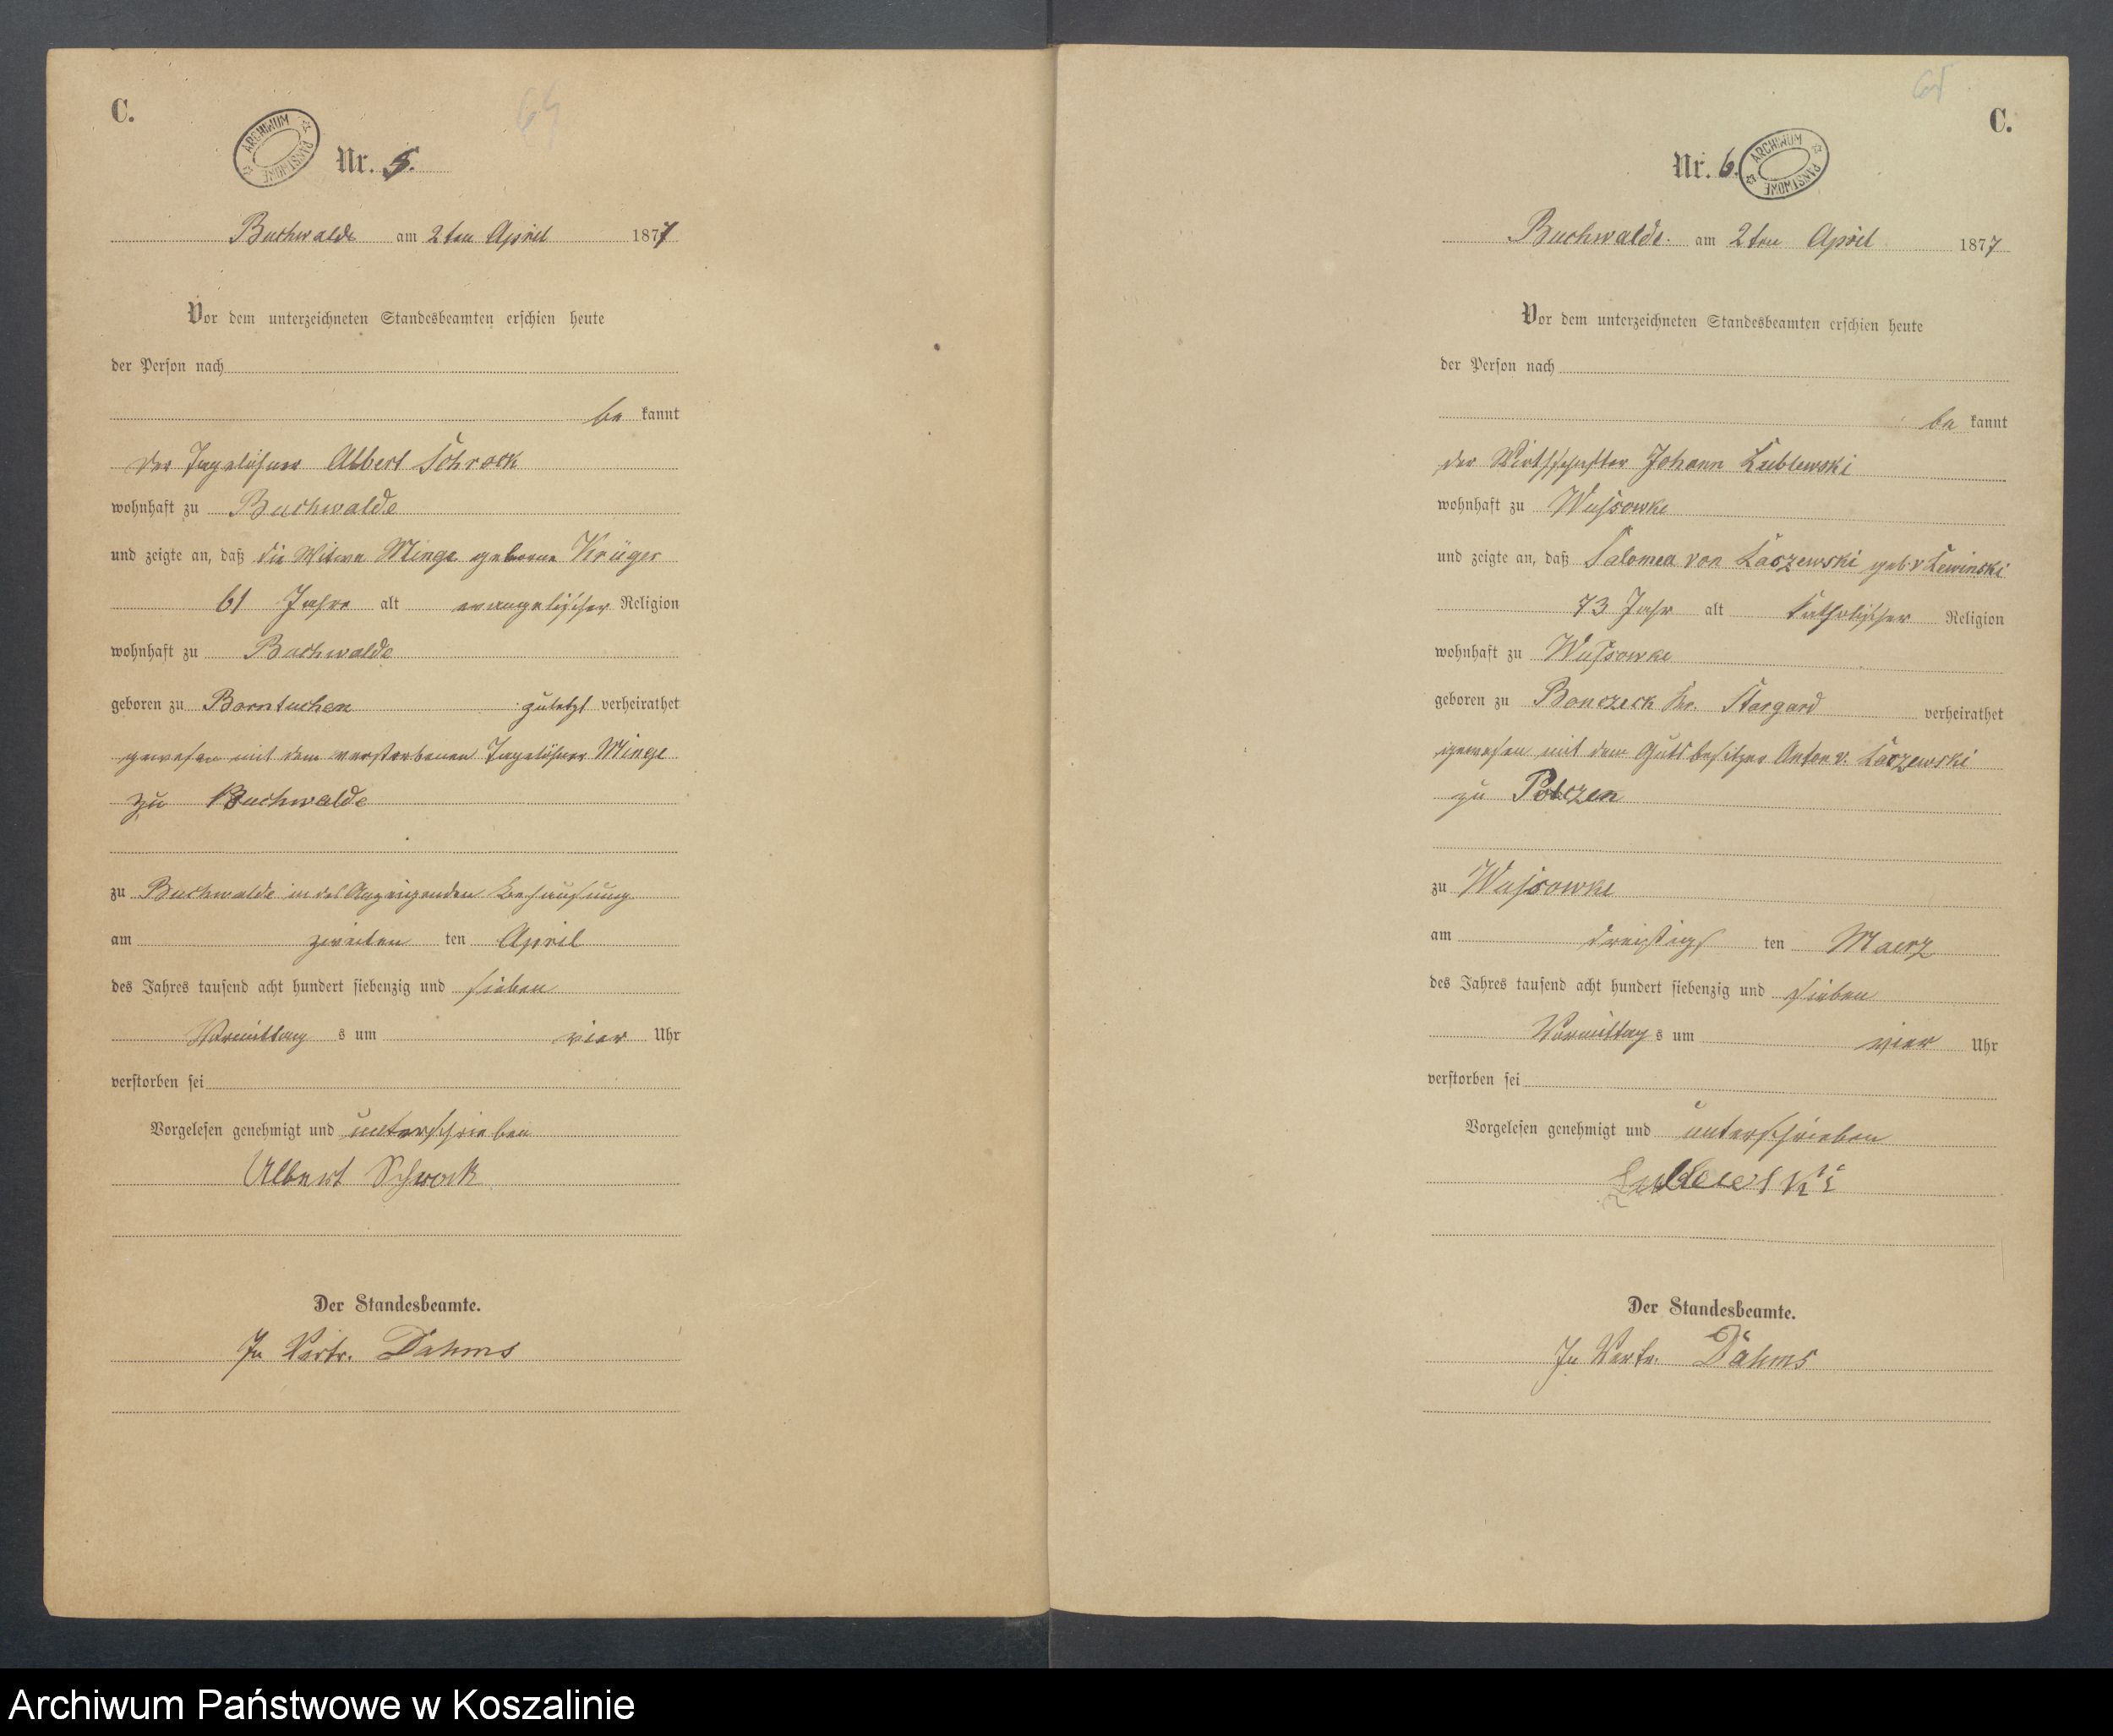 C.
64
ARCHIWUM PAŃSTWOWE
Nr. 5.
Buchwalde am 2ten April 1877
Vor dem unterzeichneten Standesbeamten erschien heute
der Person nach
be kannt
der Tagelöhner Albert Schrock
wohnhaft zu Buchwalde
und zeigte an, daß die Witwe Minge geborne Krüger
61 Jahre alt evangelischer Religion
wohnhaft zu Buchwalde
geboren zu Borntuchen zuletzt verheirathet
gewesen mit dem verstorbenen Tagelöhner Minge
zu Buchwalde
zu Buchwalde in des Anzeigenden Behausung
am zweiten ten April
des Jahres tausend acht hundert siebenzig und sieben
Vormittag s um vier Uhr
verstorben sei
Vorgelesen genehmigt und unterschrieben
Albert Schrock
Der Standesbeamte.
In Vertr. Dahms
65
C.
Nr. 6.
ARCHIWUM PAŃSTWOWE
Buchwalde. am 2ten April 1877
Vor dem unterzeichneten Standesbeamten erschien heute
der Person nach
be kannt
der Wirthschafter Johann Lublewski
wohnhaft zu Wussowke
und zeigte an, daß Salomea von Laszewski geb. v Lewinski
73 Jahr alt katholischer Religion
wohnhaft zu Wussowke
geboren zu Bonczeck Kr. Stargard verheirathet
gewesen mit dem Gutsbesitzer Anton v. Laszewski
zu Polczen
zu Wussowke
am dreißigs ten Maerz
des Jahres tausend acht hundert siebenzig und sieben
Vormittag s um vier Uhr
verstorben sei
Vorgelesen genehmigt und unterschrieben
Lublewski
Der Standesbeamte.
In Vertr. Dahms
Archiwum Państwowe w Koszalinie